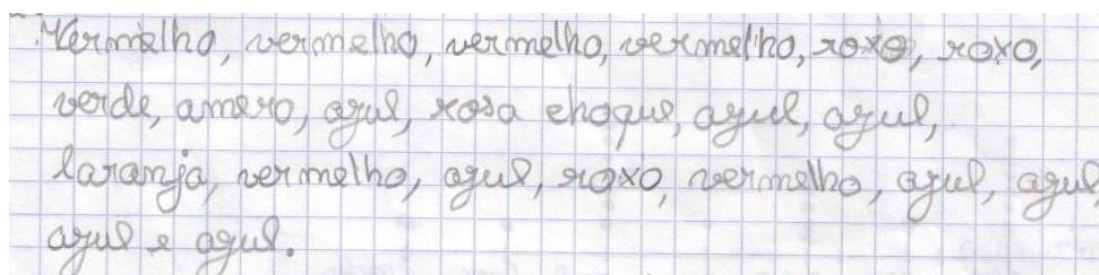 Vermelho, vermelho, vermelho, vermelho, roxo, roxo,
verde, amero, azul, rosa choque, azul, azul,
laranja, vermelho, azul, roxo, vermelho, azul, azul,
azul e azul.